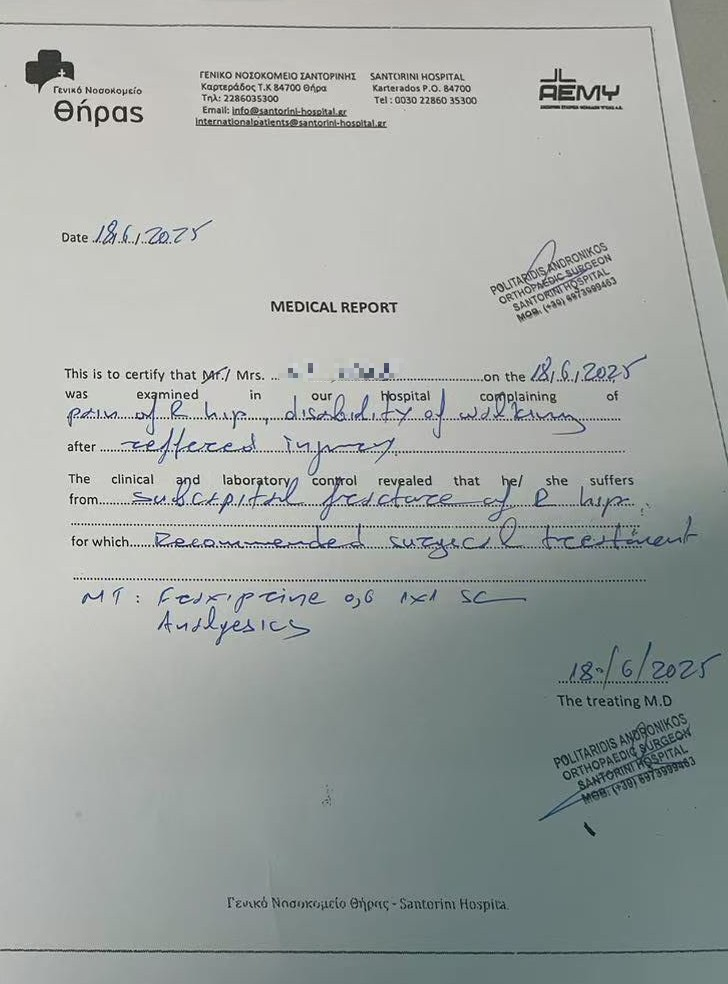 Γενικό Νοσοκομείο
Θήρας
ΓΕΝΙΚΟ ΝΟΣΟΚΟΜΕΙΟ ΣΑΝΤΟΡΙΝΗΣ
Καρτεράδος Τ.Κ 84700 Θήρα
Τηλ: 2286035300
Email: info@santorini-hospital.gr
internationalpatients@santorini-hospital.gr
SANTORINI HOSPITAL
Karterados P.O. 84700
Tel : 0030 22860 35300
ΑΕΜΥ
Date 18/6/2025
POLITARIDIS ANDRONIKOS
ORTHOPAEDIC SURGEON
SANTORINI HOSPITAL
MOB. (+30) 6973999463
MEDICAL REPORT
This is to certify that Mr./ Mrs. on the 18/6/2025
was examined in our Hospital complaining of
pain of R hip, disability of walking
after reffered injury
The clinical and laboratory control revealed that he/ she suffers
from subcapital fracture of R hip.
for which Recommended surgical treatment
MT: 0,6 1x1 SC
Analgesics
18/6/2025
The treating M.D
POLITARIDIS ANDRONIKOS
ORTHOPAEDIC SURGEON
SANTORINI HOSPITAL
MOB. (+30) 6973999463
Γενικό Νοσοκομείο Θήρας - Santorini Hospital